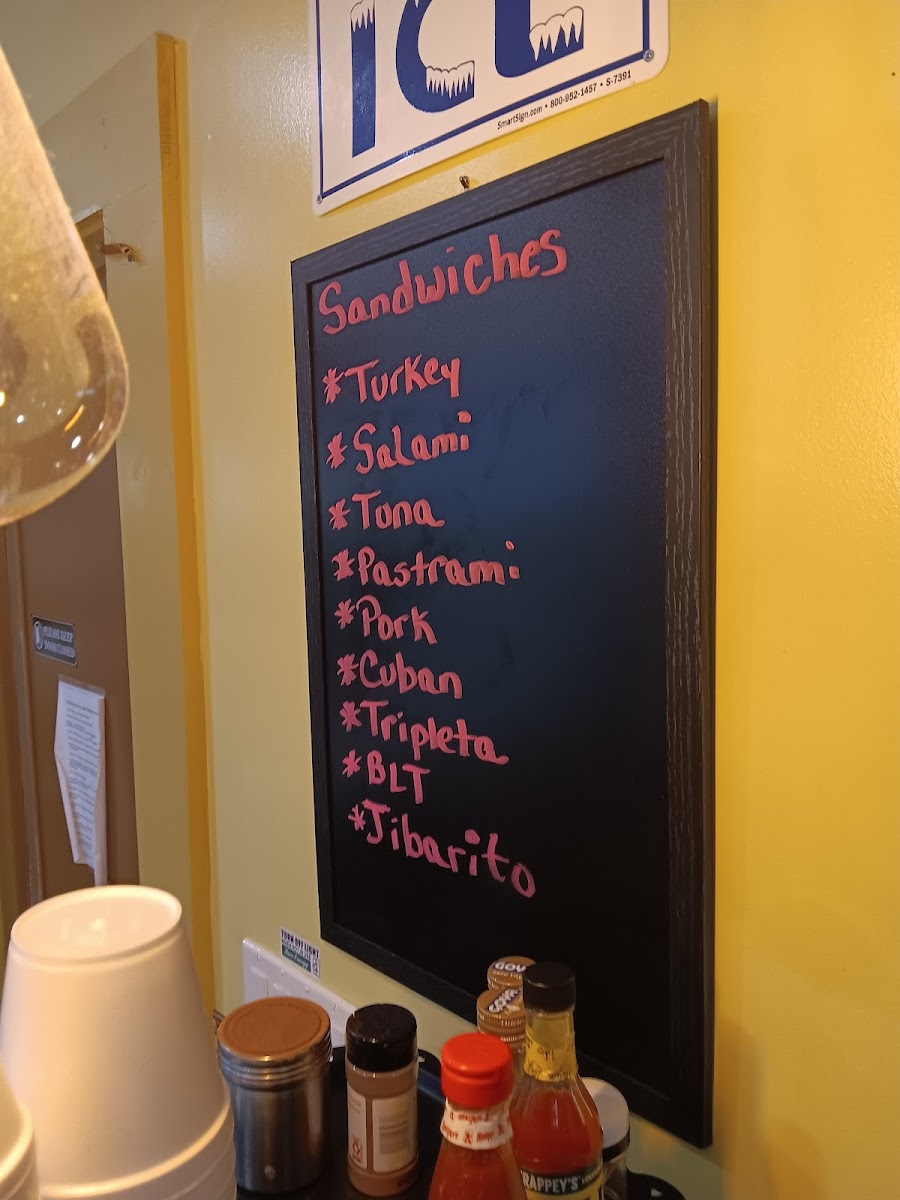 ICE
SmartSign.com • 800-952-1457 • S-7391
Sandwiches
*Turkey
*Salami
*Tuna
*Pastrami
*Pork
*Cuban
*Tripleta
*BLT
*Jibarito
PLEASE KEEP
DOOR CLOSED
TURN OFF LIGHT
GOYA
RAPPEY'S